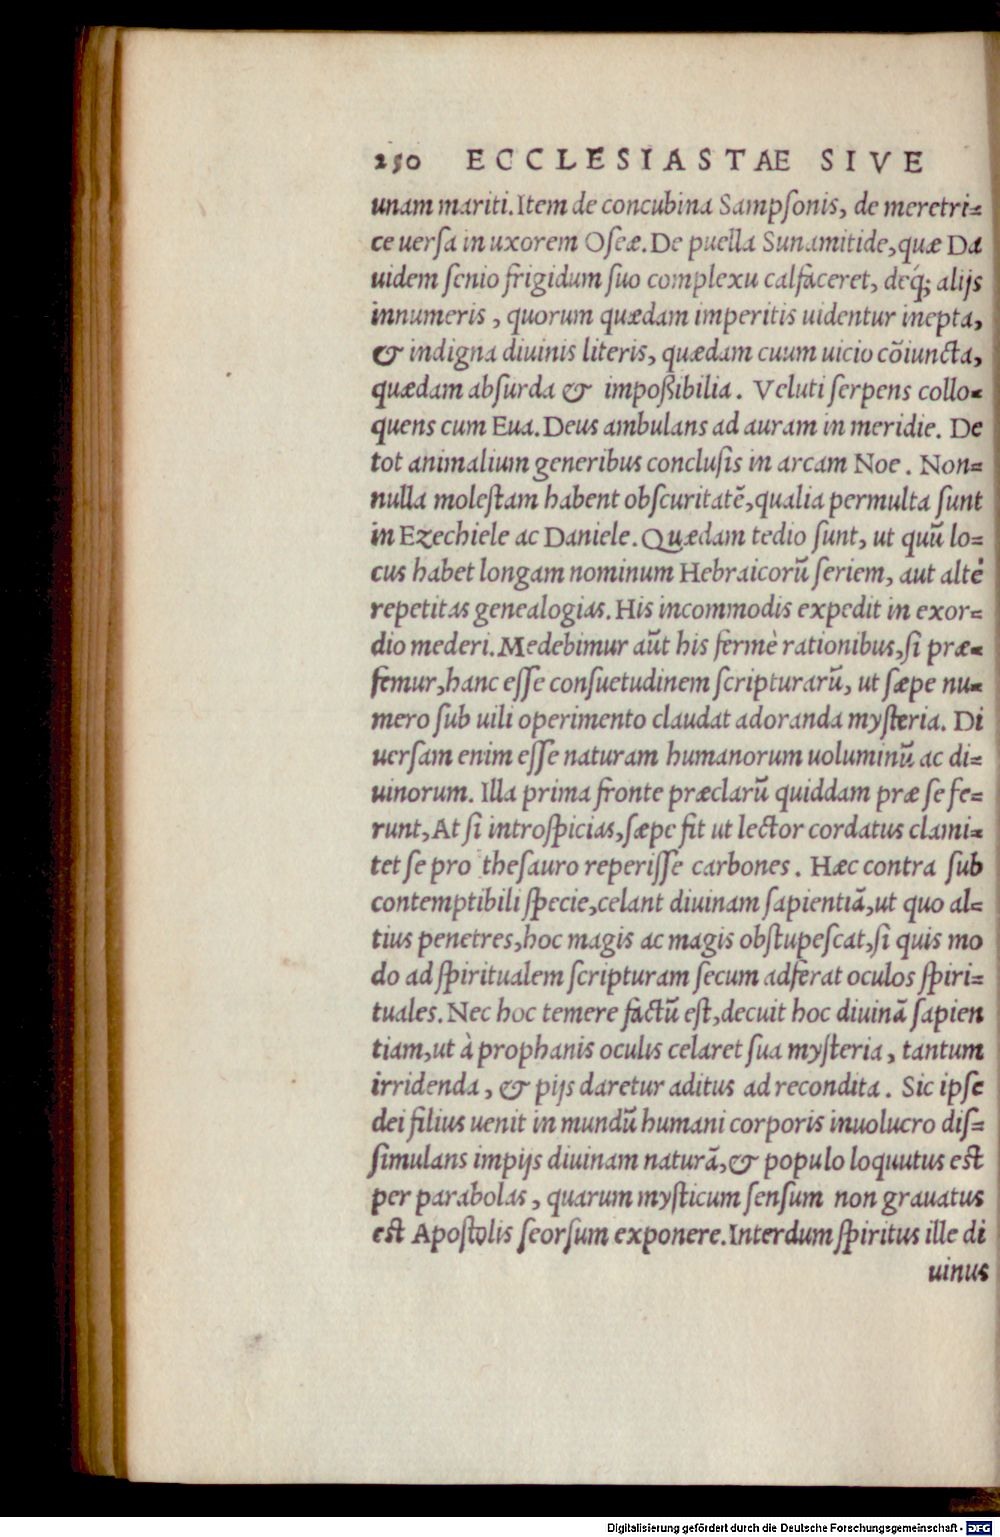 250 ECCLESIASTAE SIVE
unam mariti. Item de concubina Sampſonis, de meretri=
ce uerſa in uxorem Oſeæ. De puella Sunamitide, quæ Da
uidem ſenio frigidum ſuo complexu calfaceret, deq́; alijs
innumeris, quorum quædam imperitis uidentur inepta,
& indigna diuinis literis, quædam cuum uicio cõiuncta,
quædam abſurda & impoßibilia. Veluti ſerpens collo=
quens cum Eua. Deus ambulans ad auram in meridie. De
tot animalium generibus concluſis in arcam Noe. Non=
nulla moleſtam habent obſcuritatẽ, qualia permulta ſunt
in Ezechiele ac Daniele. Quædam tedio ſunt, ut quũ lo=
cus habet longam nominum Hebraicorũ ſeriem, aut altè
repetitas genealogias. His incommodis expedit in exor=
dio mederi. Medebimur aũt his fermè rationibus, ſi præ=
femur, hanc eſſe conſuetudinem ſcripturarũ, ut ſæpe nu=
mero ſub uili operimento claudat adoranda myſteria. Di
uerſam enim eſſe naturam humanorum uoluminũ ac di=
uinorum. Illa prima fronte præclarũ quiddam præ ſe fe=
runt, At ſi introſpicias, ſæpe fit ut lector cordatus clami=
tet ſe pro theſauro reperiſſe carbones. Hæc contra ſub
contemptibili ſpecie, celant diuinam ſapientiã, ut quo al=
tius penetres, hoc magis ac magis obſtupeſcat, ſi quis mo
do ad ſpiritualem ſcripturam ſecum adferat oculos ſpiri=
tuales. Nec hoc temere factũ eſt, decuit hoc diuinã ſapien
tiam, ut à prophanis oculis celaret ſua myſteria, tantum
irridenda, & pijs daretur aditus ad recondita. Sic ipſe
dei filius uenit in mundũ humani corporis inuolucro diſ=
ſimulans impijs diuinam naturã, & populo loquutus est
per parabolas, quarum myſticum ſenſum non grauatus
est Apoſtolis ſeorſum exponere. Interdum ſpiritus ille di
uinus
Digitalisierung gefördert durch die Deutsche Forschungsgemeinschaft - DFG